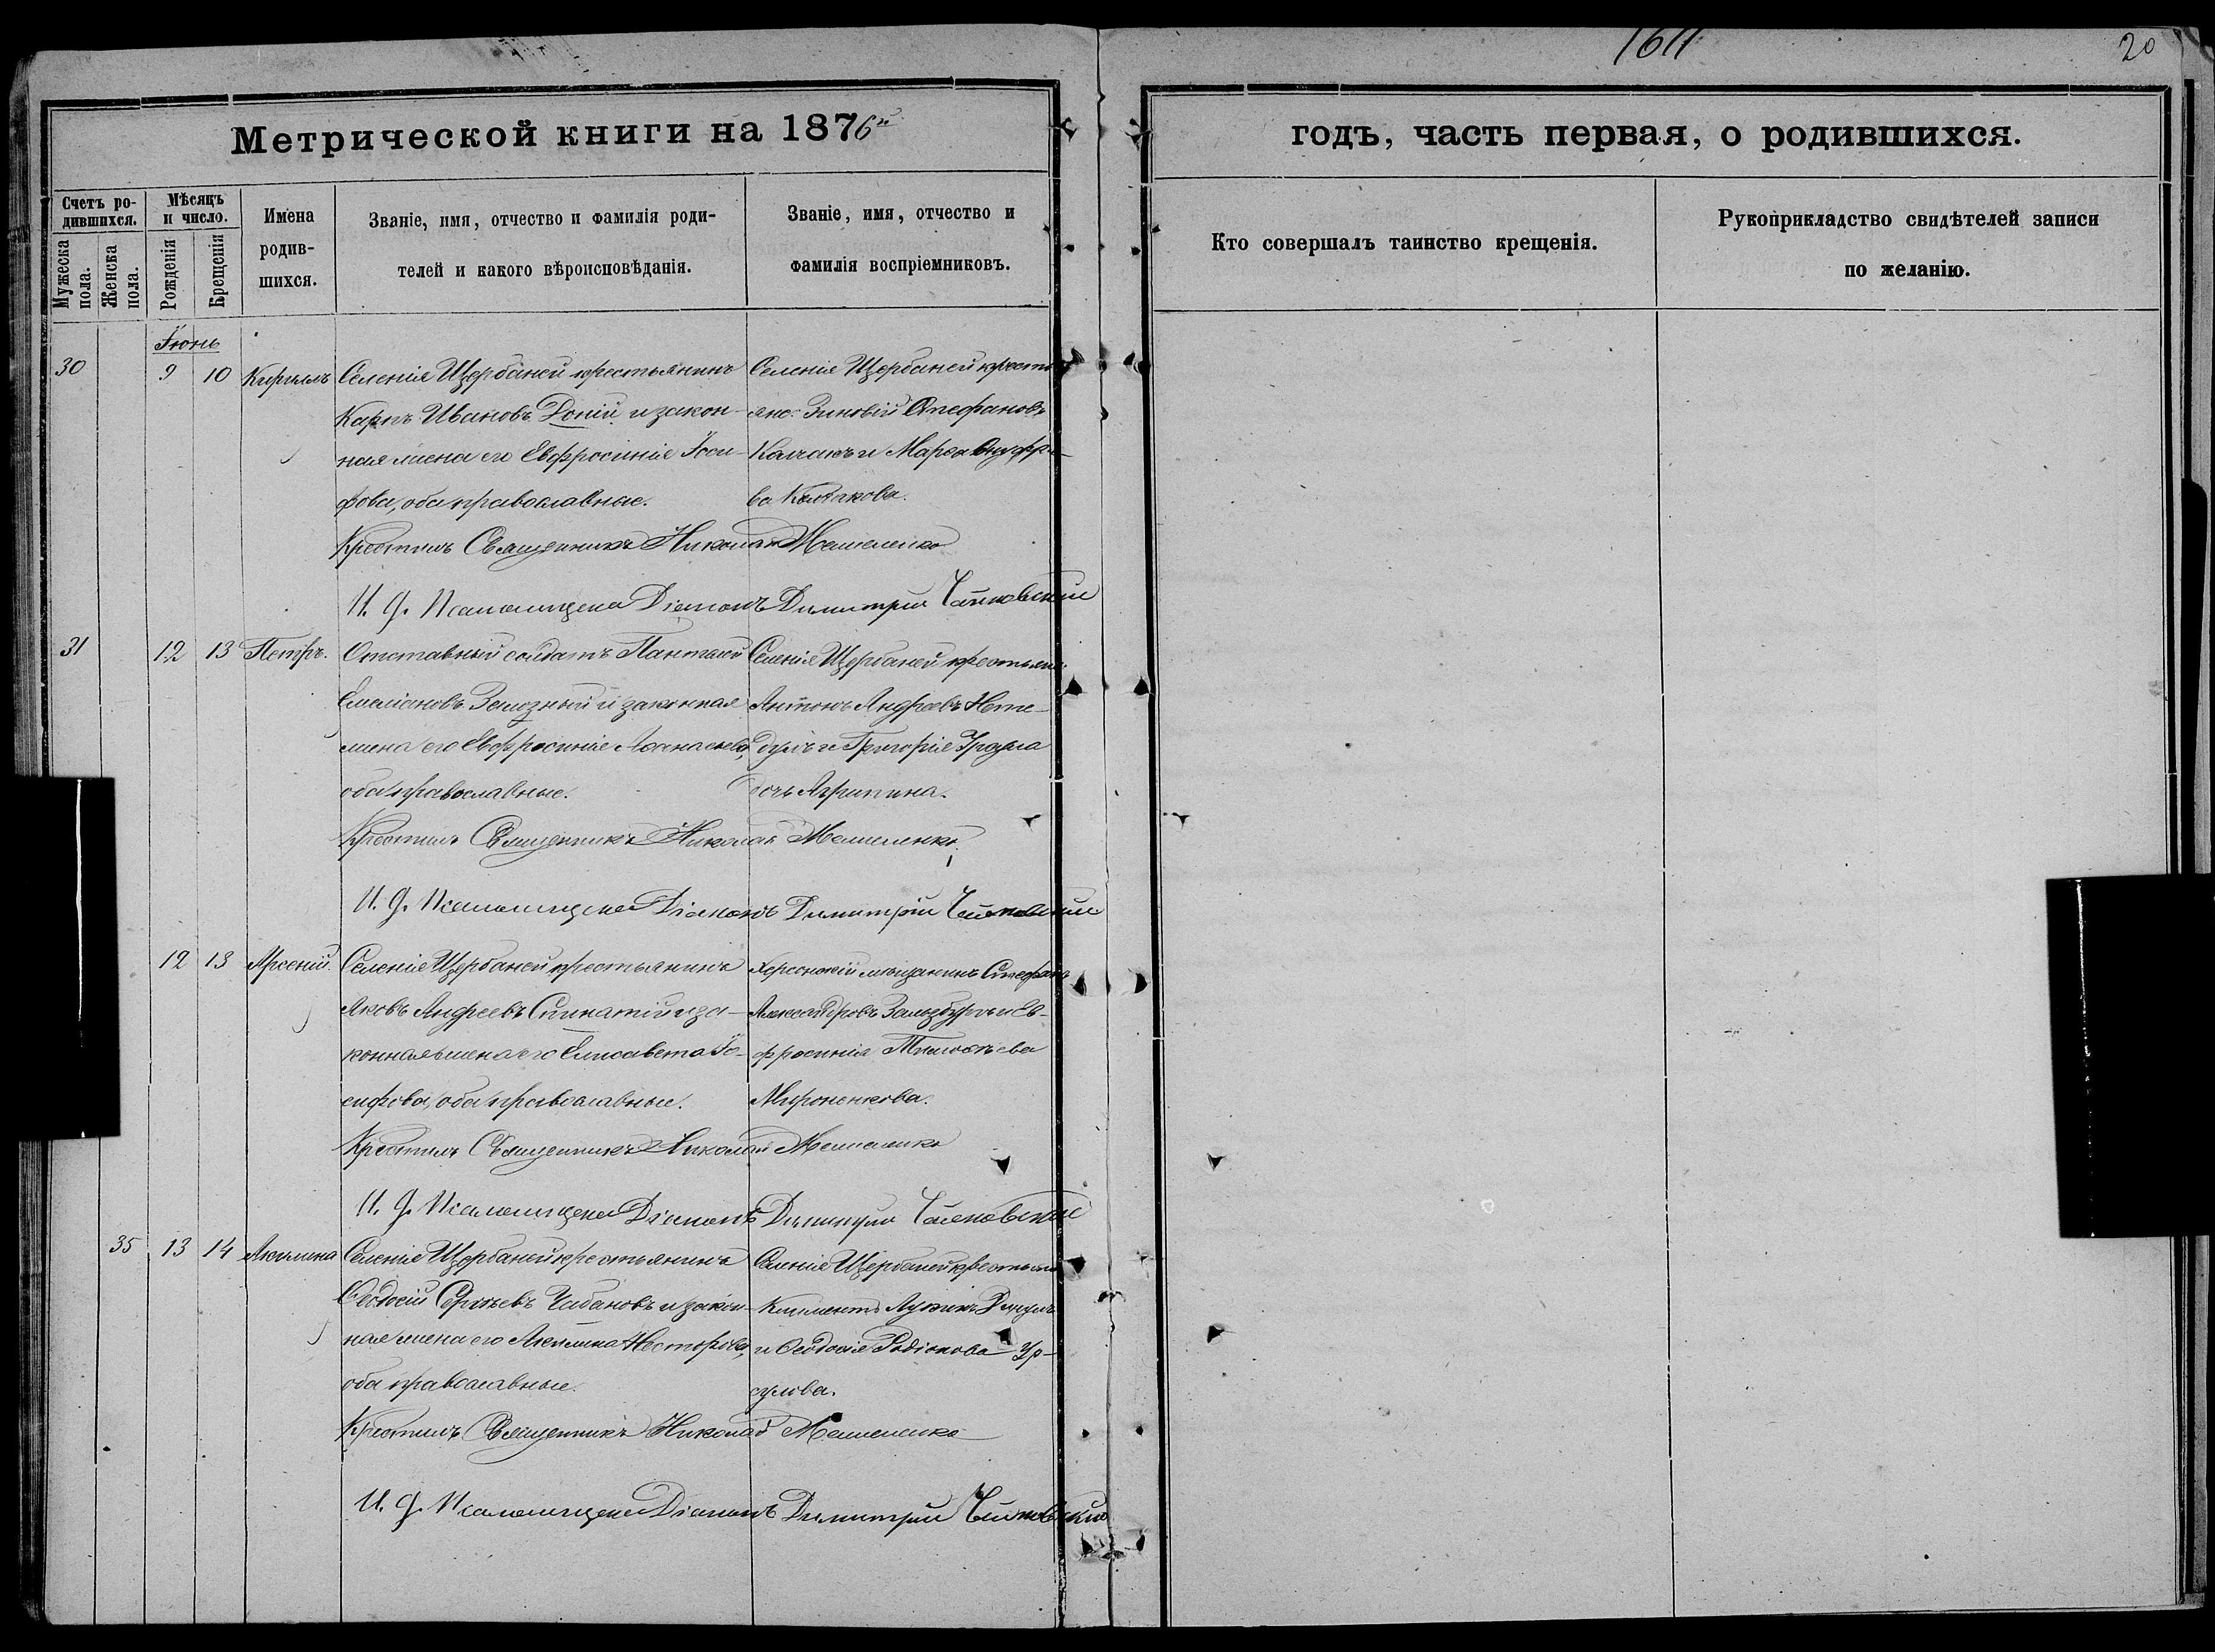 20
Метрической книги на 1876й
годъ, часть первая, о родившихся.
Счетъ ро-
дившихся.
Мужеска
пола.
Женска
пола.
Мѣсяцъ
и число.
Рожденія
Крещенія
Имена
родив-
шихся.
Званіе, имя, отчество и фамилія роди-
телей и какого вѣроисповѣданія.
Званіе, имя, отчество и
фамилія воспріемниковъ.
Кто совершалъ таинство крещенія.
Рукоприкладство свидѣтелей записи
по желанію.
Іюнь
30 9 10 Кириллъ Селенія Щербаней крестьянинъ
Карпъ Ивановъ Доній и закон-
ная жена его Евфросинія Іоси-
фова, оба православные.
Селенія Щербаней кресть
яне: Зиновій Стефановъ
и Марѳа
ва
Крестилъ Священникъ Николай
И. д. Псаломщика Діаконъ Димитрій
31 12 13 Петръ. Отставный солдатъ
Емеліановъ и законная
жена его Евфросинія Аѳанасьева,
оба православные.
Селенія Щербаней крестьяне
Антонъ Андреевъ Нете-
и Григорія
дочь Агрипина.
Крестилъ Священникъ Николай
И. д. Псаломщика Діаконъ Димитрій
12 13 Арсеній. Селенія Щербаней крестьянинъ
Яковъ Андреевъ и за-
конная жена его Елисавета Іо-
сифова, оба православные.
Херсонскій мѣщанинъ Стефанъ
Александровъ Зальцбургъ и Ев-
фросинія Тимоѳеева
Мироненкова.
Крестилъ Священникъ Николай
И. д. Псаломщика Діаконъ Димитрій
35 13 14 Акилина Селенія Щербаней крестьянинъ
Ѳеодосій Сергѣевъ Чабановъ и закон-
ная жена его Акилина Несторова,
оба православные.
Селенія Щербаней крестьяне
Климентъ
и Ѳеодосія Родіонова Ур-
сулова.
Крестилъ Священникъ Николай
И. д. Псаломщика Діаконъ Димитрій